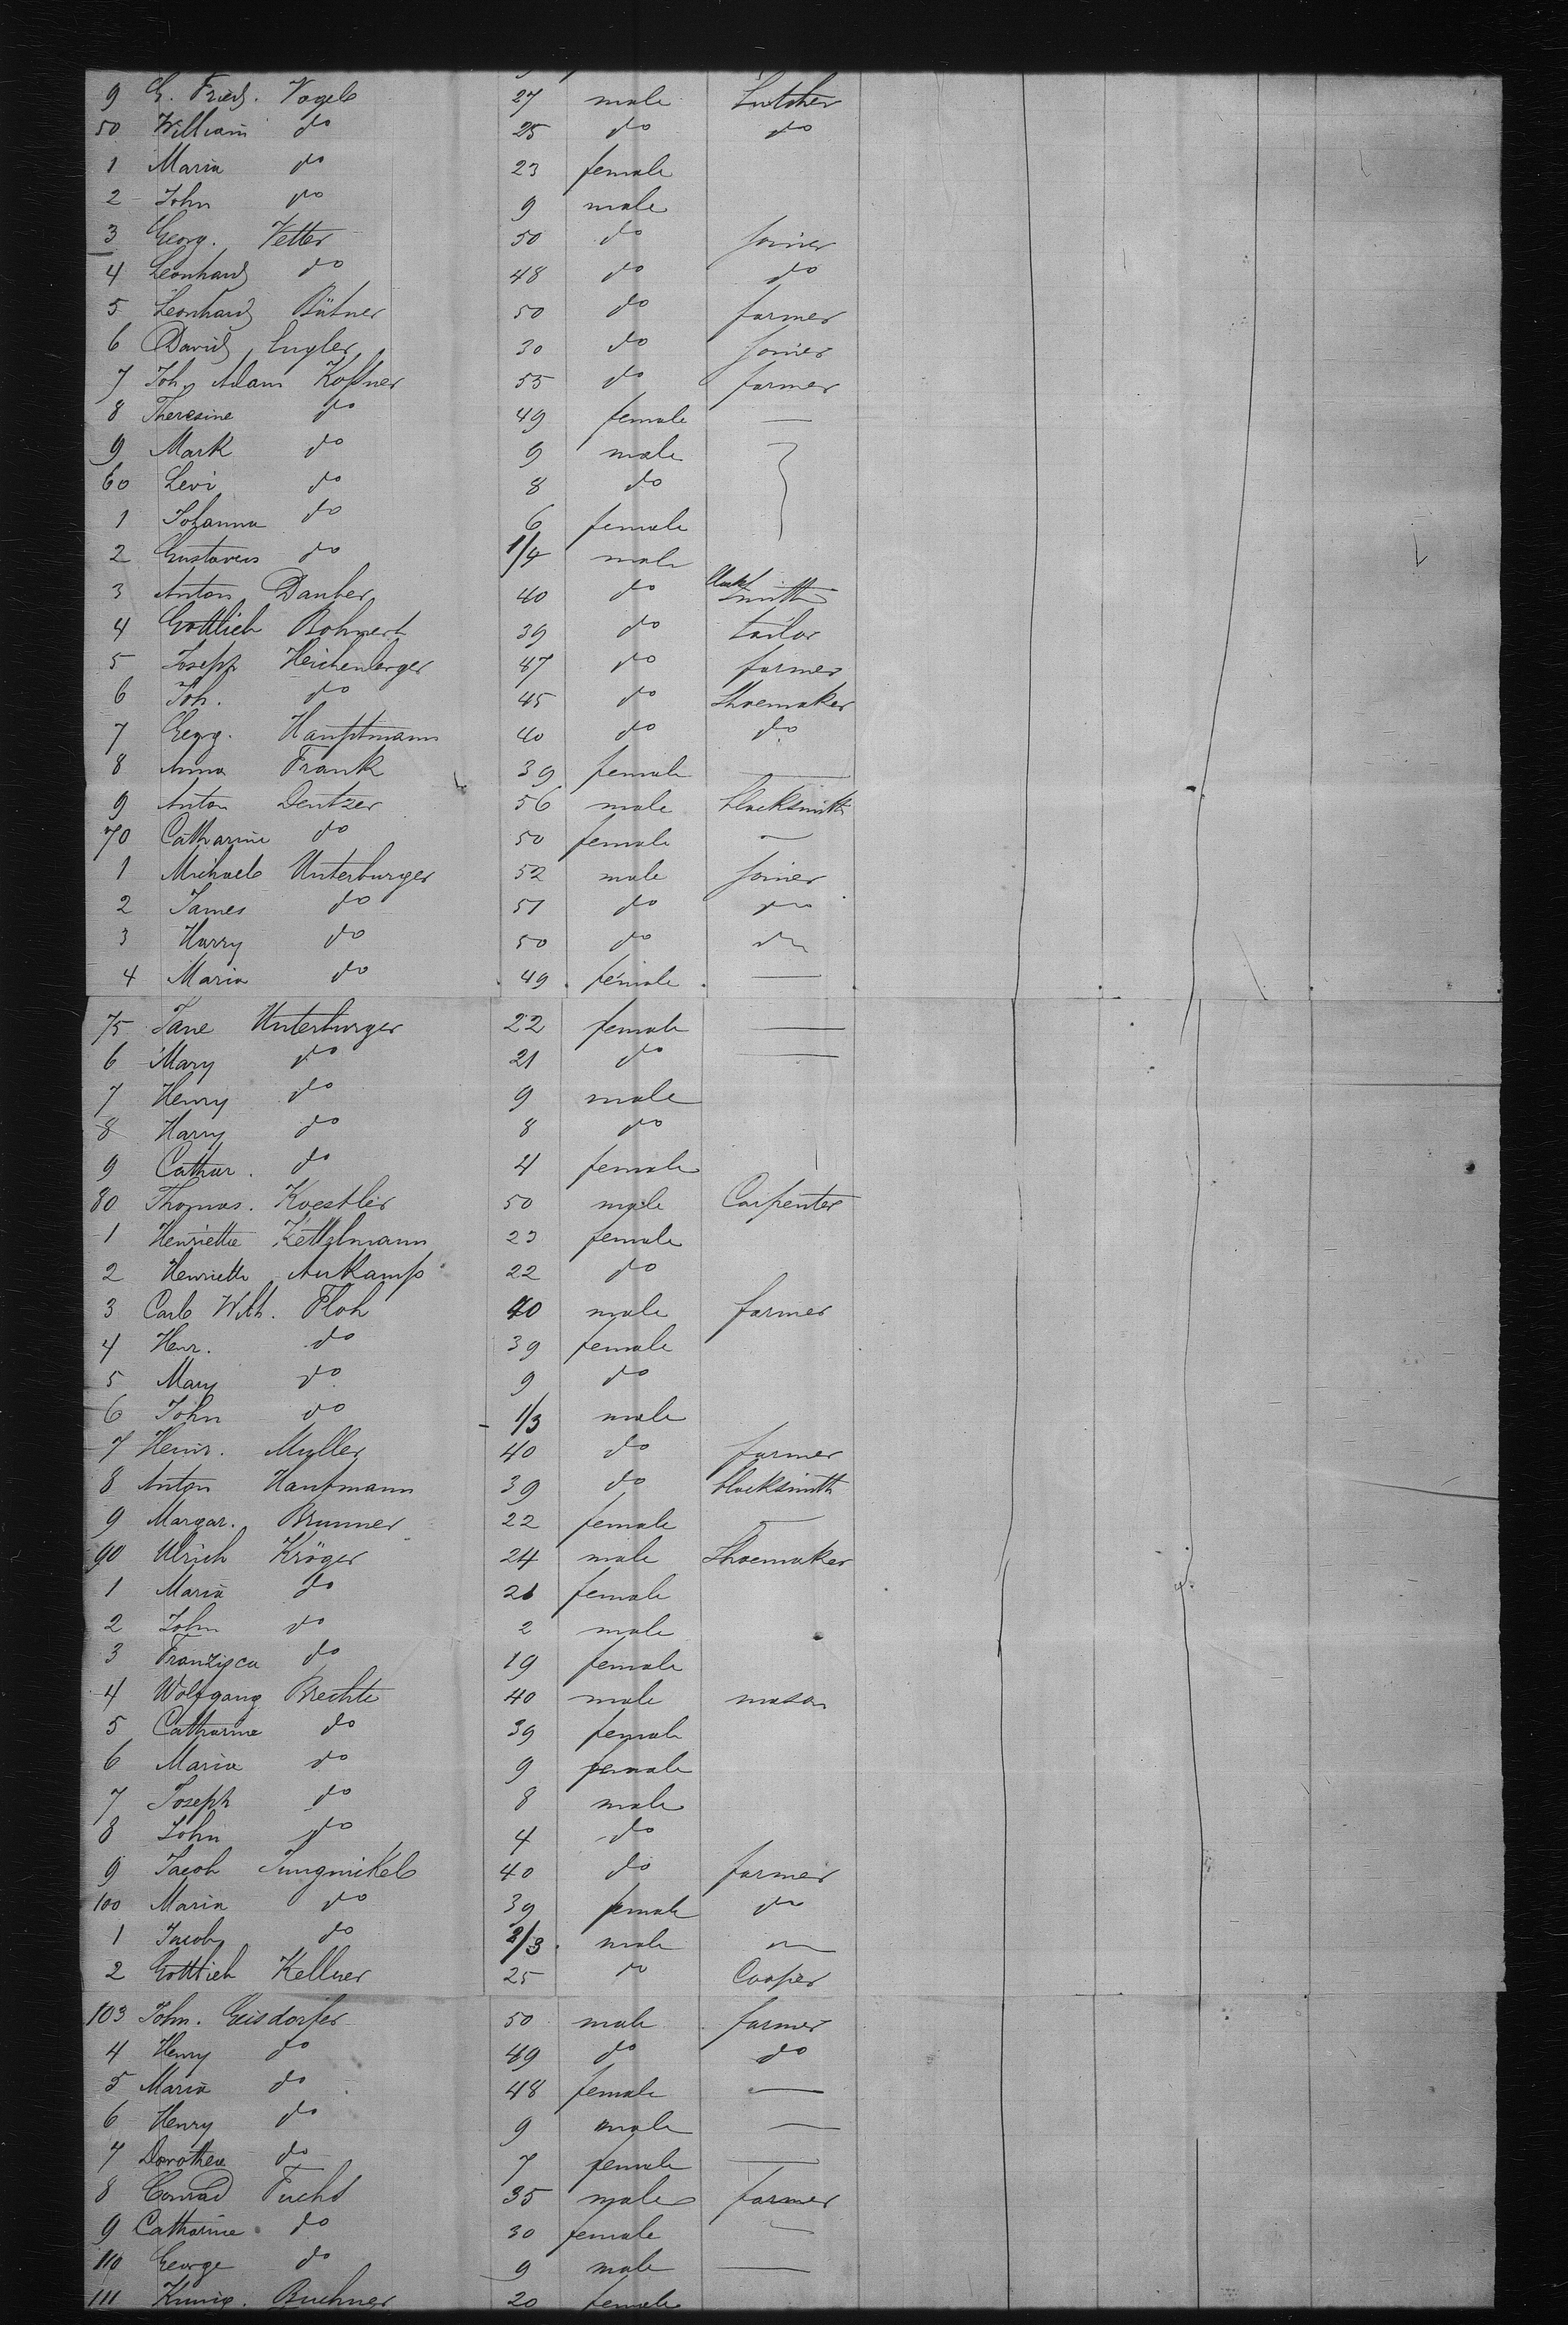 9 G. Fried. Vogel 27 male butcher
50 William do 25 do do
1 Maria do 23 female
2 John do 9 male
3 Georg. Vetter 50 do joiner
4 Leonhard do 48 do do
5 Leonhard Bütner 50 do farmer
6 David Engler 30 do joiner
7 Joh. Adam Koßner 55 do farmer
8 Theresine do 49 female —
9 Mark do 9 male
60 Levi do 8 do
1 Johanna do 6 female
2 Gustavus do 1/4 male
3 Anton Dauber 40 do smith
4 Gottlieb Bohnert 39 do tailor
5 Joseph Heichenberger 47 do farmer
6 Joh. do 45 do Shoemaker
7 Georg. Hauptmann 40 do do
8 Anna Frank 39 female —
9 Anton Dentzer 56 male blacksmith
70 Catharine do 50 female —
1 Michael Unterburger 52 male joiner
2 James do 51 do do
3 Harry do 50 do do
4 Maria do 49 female —
75 Jane Unterburger 22 female —
6 Mary do 21 do —
7 Henry do 9 male
8 Harry do 8 do
9 Cathar. do 4 female
80 Thomas. Koestler 50 male Carpenter
1 Henriette Kettelmann 23 female
2 Henriette Aukamp 22 do
3 Carl Wilh. Floh 40 male farmer
4 Henr. do 39 female
5 Mary do 9 do
6 John do 1/3 male
7 Heinr. Muller 40 do farmer
8 Anton Hauptmann 39 do blacksmith
9 Margar. Brunner 22 female —
90 Ulrich Kröger 24 male Shoemaker
1 Maria do 21 female
2 John do 2 male
3 Franzisca do 19 female
4 Wolfgang Brechte 40 male mason
5 Catharine do 39 female
6 Maria do 9 female
7 Joseph do 8 male
8 John do 4 do
9 Jacob Jungnikel 40 do farmer
100 Maria do 39 female do
1 Jacob do 2/3 male —
2 Gottlieb Kellner 25 do Cooper
103 John. Geisdorfer 50 male farmer
4 Henry do 49 do do
5 Maria do 48 female —
6 Henry do 9 male —
7 Dorothea do 7 female —
8 Conrad Fuchs 35 male farmer
9 Catharine do 30 female —
110 George do 9 male —
111 Kunig. Buchner 20 female